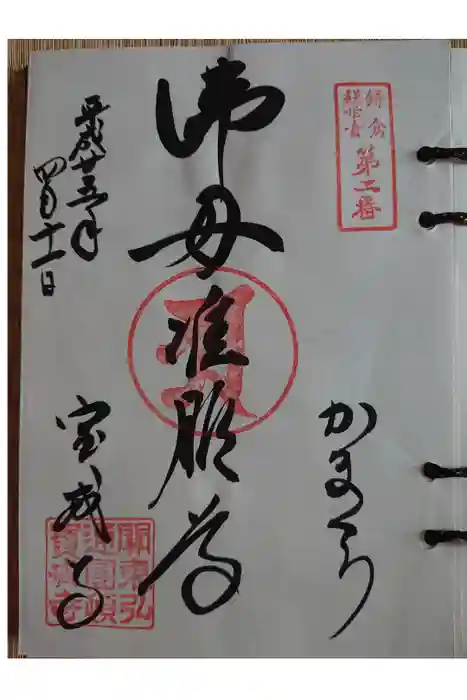 鎌倉
観世音
第二番
かまくら
佛母准胝尊
平成廿三年
四月十一日
宝戒寺
關東弘
通圓頓
寶戒寺